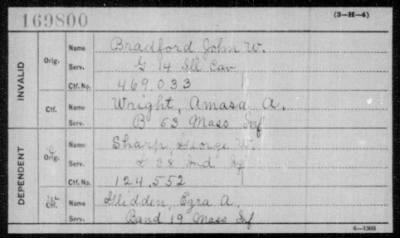 169800
(3-H-4)
INVALID
Orig.
Name
Bradford John W.
Serv.
G 14 Ill Cav
Ctf. No.
469,033
Ctf.
Name
Wright, Amasa A.
Serv.
B 53 Mass Inf
DEPENDENT
Orig.
Name
Sharp, George W.
Serv.
Ind Inf
Ctf. No.
124,552
Ctf.
Name
Glidden, Ezra A.
Serv.
Band 19 Mass Inf